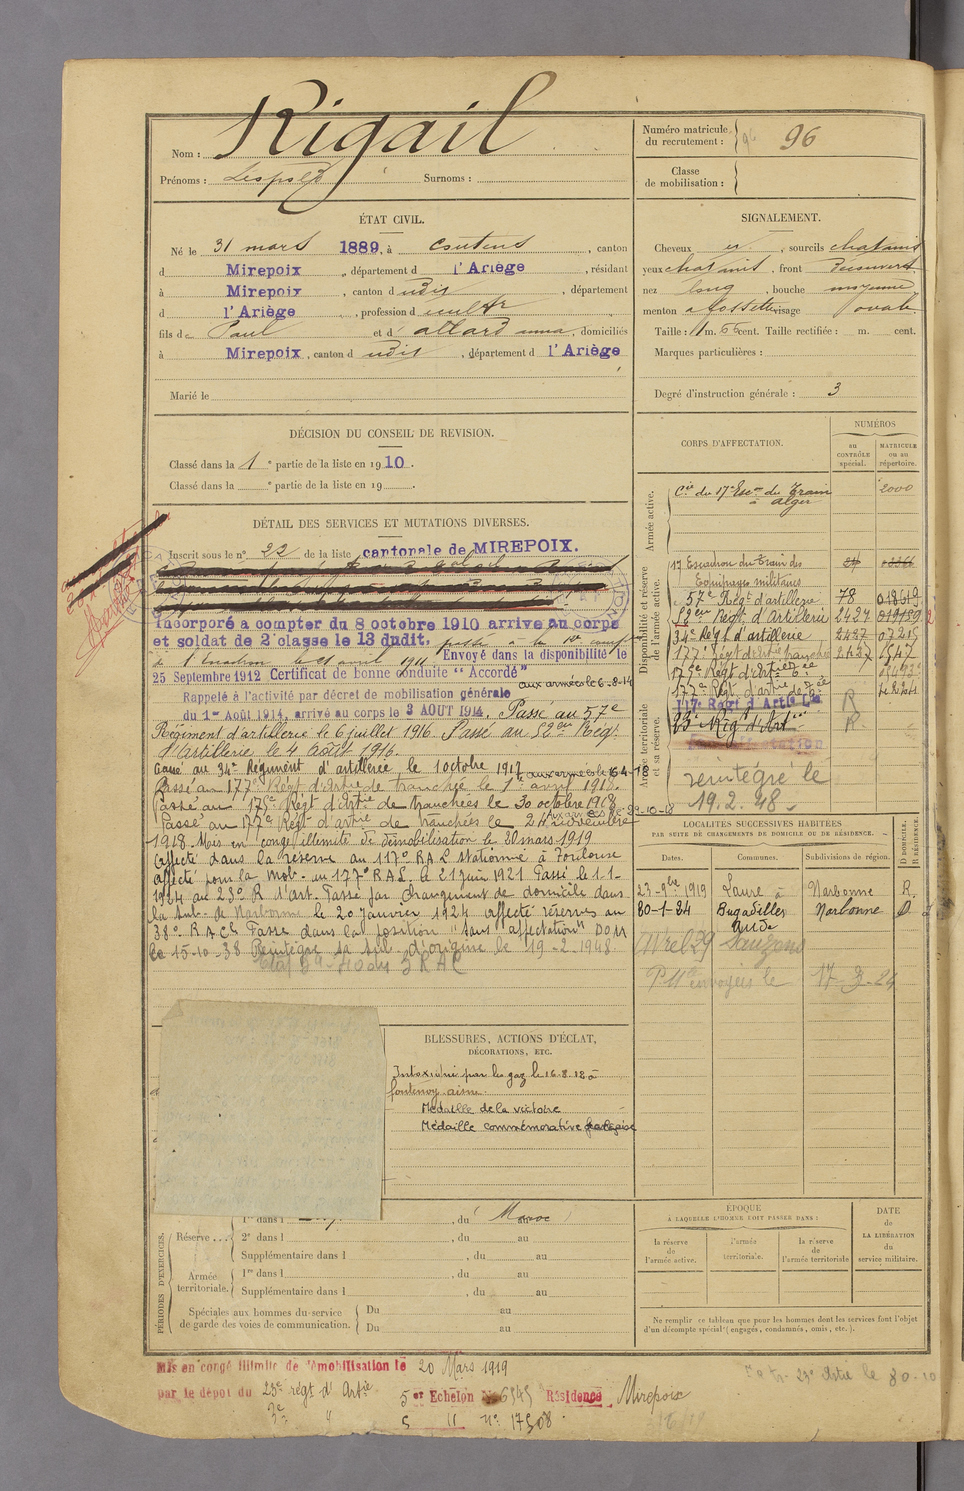 Nom : Rigail
Prénoms : Léopold Surnoms :
Numéro matricule du recrutement : 96
Classe de mobilisation :
ÉTAT CIVIL.
Né le 31 mars 1889, à Coutens, canton
d Mirepoix, département d l'Ariège, résidant
à Mirepoix, canton d udit, département
d l'Ariège, profession d cultr
fils de Paul et d' allard anna, domiciliés
à Mirepoix, canton d udit, département d l'Ariège
Marié le
SIGNALEMENT.
Cheveux , sourcils chatains
yeux chatains, front découvert
nez long, bouche moyenne
menton à fossette visage ovale
Taille : 1 m. 66 cent. Taille rectifiée : m. cent.
Marques particulières :
Degré d'instruction générale : 3
DÉCISION DU CONSEIL DE REVISION.
Classé dans la 1e partie de la liste en 1910.
Classé dans la e partie de la liste en 19 .
DÉTAIL DES SERVICES ET MUTATIONS DIVERSES.
Inscrit sous le n° 22 de la liste cantonale de MIREPOIX.
Incorporé a compter du 8 octobre 1910 arrive au corps
et soldat de 2e classe le 13 dudit. passé à la
Escadron le 21 avril 1911 Envoyé dans la disponibilité le
25 Septembre 1912 Certificat de bonne conduite "Accordé"
aux armées le 6-8-14
Rappelé à l'activité par décret de mobilisation générale
du 1er Août 1914, arrivé au corps le 3 AOUT 1914. Passé au 57e
Régiment d'artillerie le 6 juillet 1916. Passé au 52eme Rég.
d'Artillerie le 4 Août 1916.
Passé au 34e Régiment d'artillerie le 1 octobre 1917 aux armées le 16-4-18
Passé au 177e Régt d'Artie de tranchée le 1er avril 1918.
Passé au 175e Régt d'Artie de tranchées le 30 octobre 1918
Passé au 177e Régt d'artie de tranchées le 24 novembre
1918. Mis en congé illimité de démobilisation le 20 mars 1919
Affecté dans la réserve au 117e R A L stationné à Toulouse
affecté pour la mob. au 177e R A L. le 21 juin 1921 Passé le 1-1-
1924 au 23e R d'art. Passé par changement de domicile dans
la sub. de Narbonne le 20 janvier 1924 affecté réserves au
38e R A C Passé dans la position "sans affectation" DOM
le 15-10-38 Réintègre sa sub. d'origine le 19-2-1948
CORPS D'AFFECTATION.
NUMÉROS
au CONTRÔLE spécial.
MATRICULE ou au répertoire.
Armée active.
Cie du 17e Escon du Train à Alger 2000
Disponibilité et réserve de l'armée active.
17 Escadron du Train des Equipages militaires
57e Régt d'artillerie 78 018019
52eme Régt d'Artillerie 2427 019159
34e Régt d'artillerie 2427 07215
177e Régt d'Artie tranchée 2427 1547
175e Régt d'Artie
177e Régt d'artie de
Armée territoriale et sa réserve.
117e Régt d'Artie Lde R
23e Régt d'Art R
réintégré le
19.2.48
LOCALITÉS SUCCESSIVES HABITÉES
PAR SUITE DE CHANGEMENTS DE DOMICILE OU DE RÉSIDENCE.
Dates. Communes. Subdivisions de région. D DOMICILE. R RÉSIDENCE.
23-9bre 1919 Laure à Narbonne R.
20-1-24 Bugadelles Aude Narbonne D
envoyées le 17-3-24
BLESSURES, ACTIONS D'ÉCLAT,
DÉCORATIONS, ETC.
Intoxiqué par les gaz le 16.8.18 à
fontenoy aisne.
Médaille de la victoire
Médaille commémorative française
PÉRIODES D'EXERCICES.
Réserve
1re dans l , du Maroc au
2e dans l , du au
Supplémentaire dans l , du au
Armée territoriale.
1re dans l , du au
Supplémentaire dans l , du au
Spéciales aux hommes du service de garde des voies de communication.
Du au
Du au
ÉPOQUE
À LAQUELLE L'HOMME DOIT PASSER DANS :
la réserve de l'armée active.
l'armée territoriale.
la réserve de l'armée territoriale
DATE de LA LIBÉRATION du service militaire.
Ne remplir ce tableau que pour les hommes dont les services font l'objet
d'un décompte spécial (engagés, condamnés, omis, etc.).
Mis en congé illimité de démobilisation le 20 Mars 1919
par le dépôt du 23e régt d'Artie 5er Echelon N° 6545 Résidence Mirepoix
5 11 n° 17508